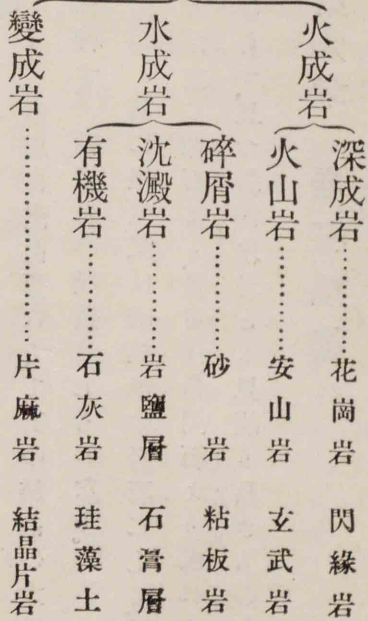 火成岩
深成岩……………花崗岩 閃緑岩
火山岩……………安山岩 玄武岩
水成岩
碎屑岩……………砂岩 粘板岩
沈澱岩……………岩鹽層 石膏層
有機岩……………石灰岩 珪藻土
變成岩……………………片麻岩 結晶片岩